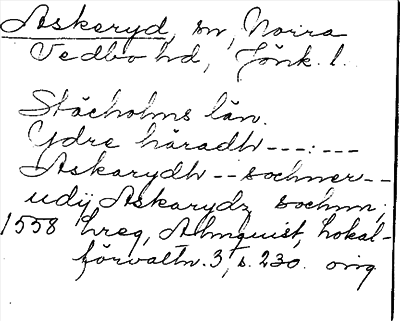 Askeryd, sn, Norra
Vedbo hd, Jönk. l.
Stächolms län.
Ydre häradh ---:---
Askarydh -- sochner --
udij Askarydz sochnn;
1558 hreg, Almquist, Lokal-
förvaltn. 3, s. 230. orig